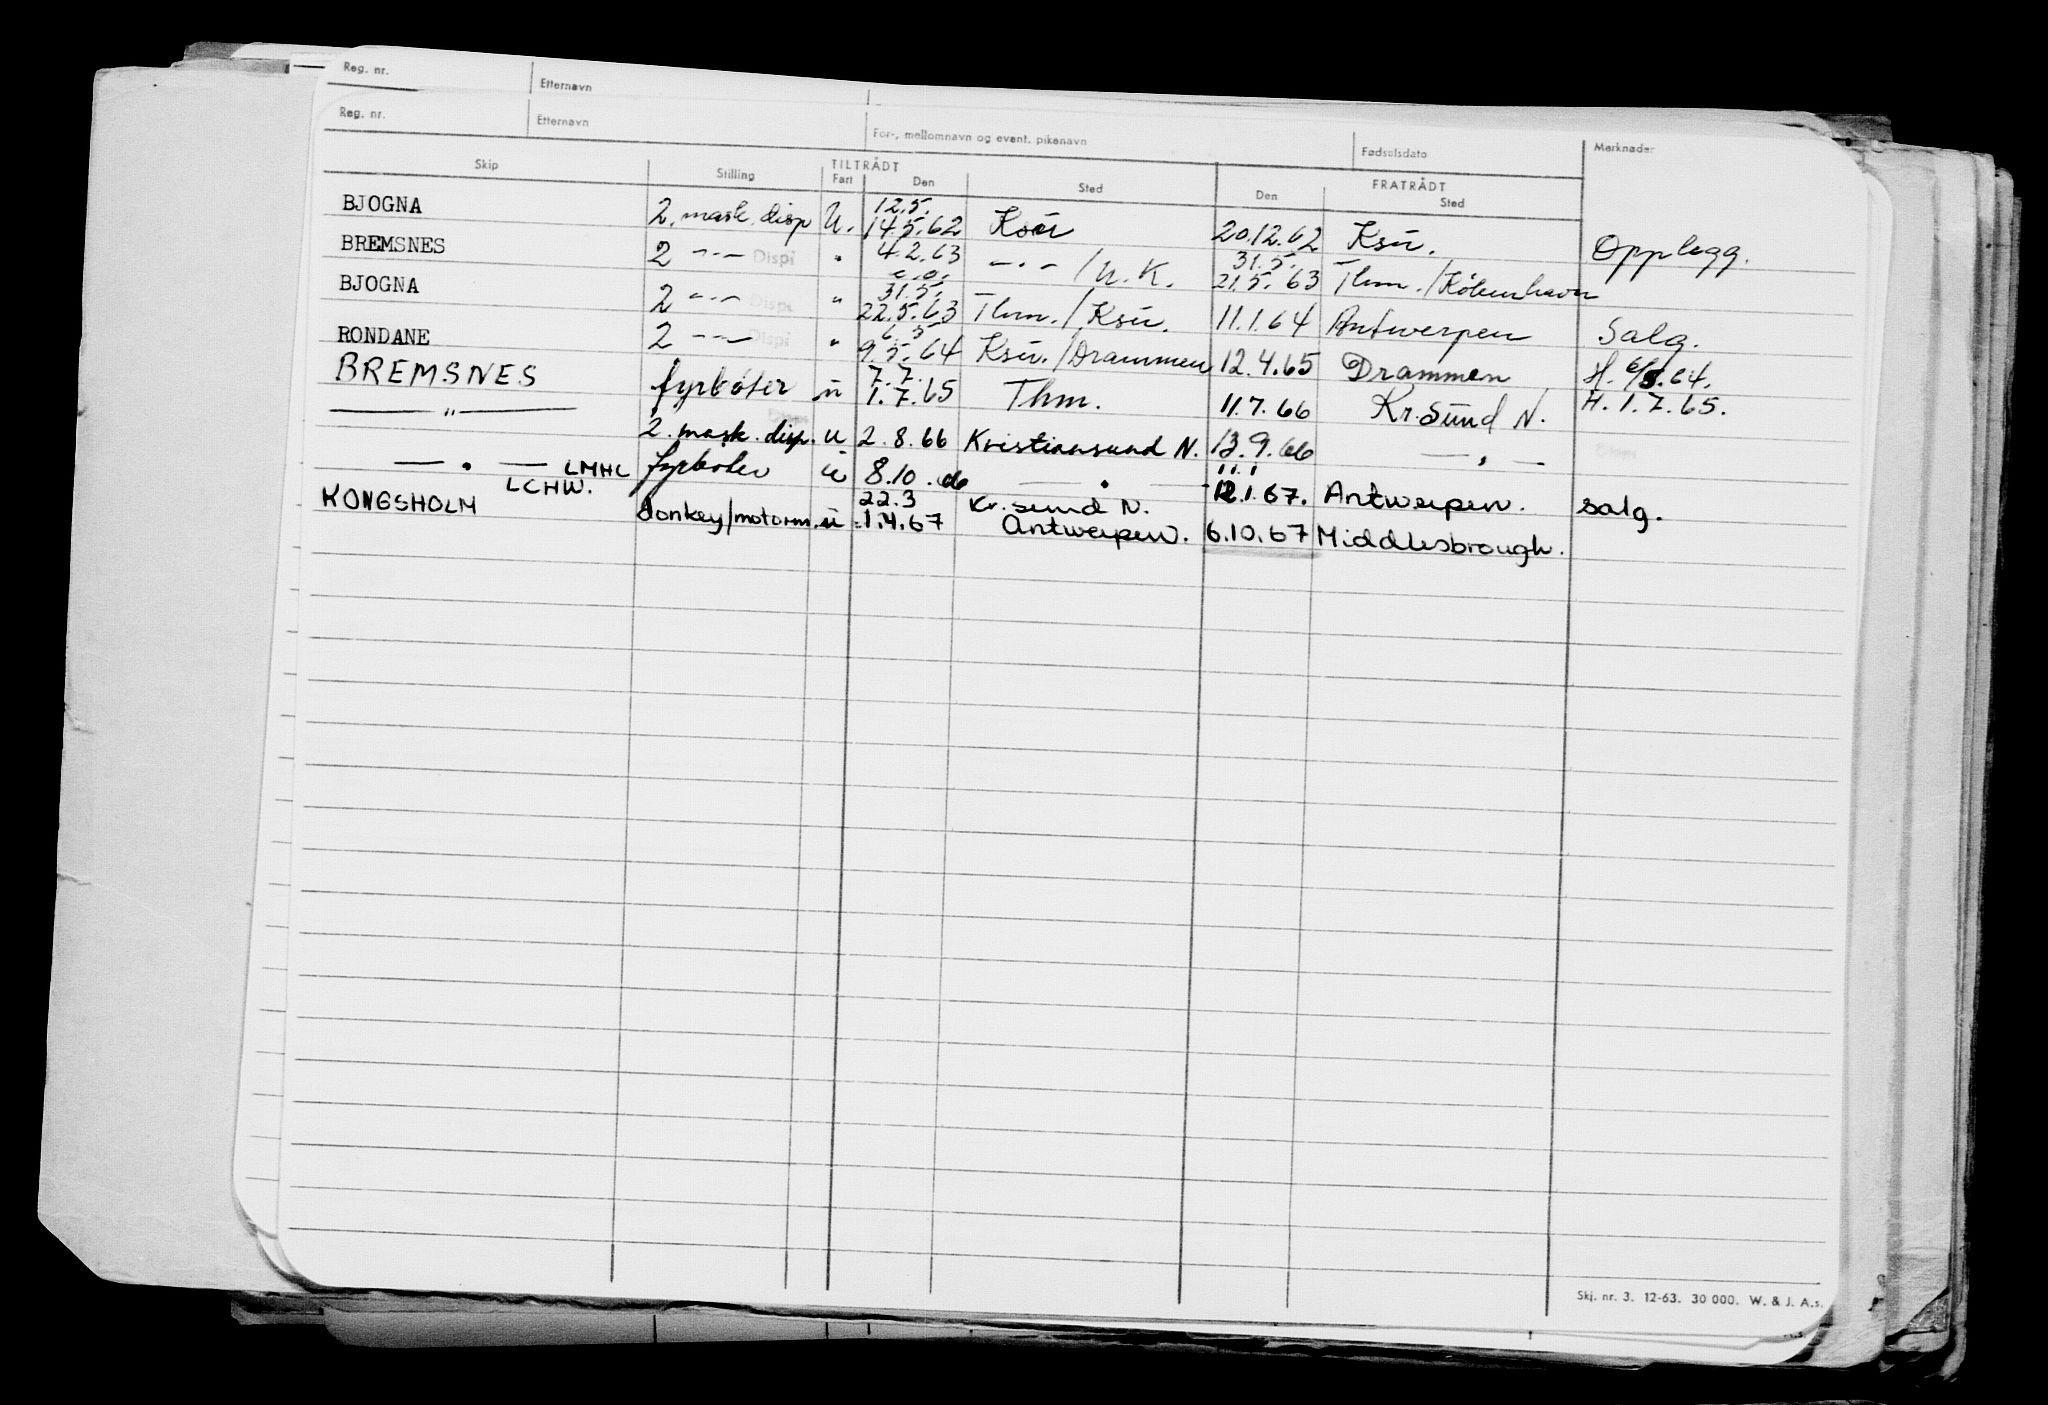 Reg. nr. Etternavn
Reg. nr. Etternavn For-, mellomnavn og event. pikenavn Fødselsdato Merknader
TILTRÅDT FRATRÅDT
Skip Stilling Fart Den Sted Den Sted
12.5.
BJOGNA 2. mask. disp U. 14.5.62 Ksu 20.12.62 Ksu. Opplegg.
4.2.63 31.5.
BREMSNES 2 -"- Dispi " -"- / U.K. 21.5.63 Thm./København
31.5.
BJOGNA 2 -"- Dispi " 22.5.63 Thm./Ksu. 11.1.64 Antwerpen Salg.
6.5
RONDANE 2 -"- Dispi " 9.5.64 Ksu./Drammen 12.4.65 Drammen H. 6/5.64.
7.7.
BREMSNES fyrbøter u 1.7.65 Thm. 11.7.66 Kr.Sund N. H. 1.7.65.
-"- 2. mask. disp. u 2.8.66 Kristiansund N. 13.9.66 -"-
11.1
-"- LMHL fyrbøter u 8.10.66 -"- 12.1.67. Antwerpen. salg.
LCHW. 22.3 Kr.sund N.
KONGSHOLM donkey/motorm. u 1.4.67 Antwerpen. 6.10.67 Middlesbrough.
Skj. nr. 3. 12-63. 30 000. W. & J. A.s.
A.s.